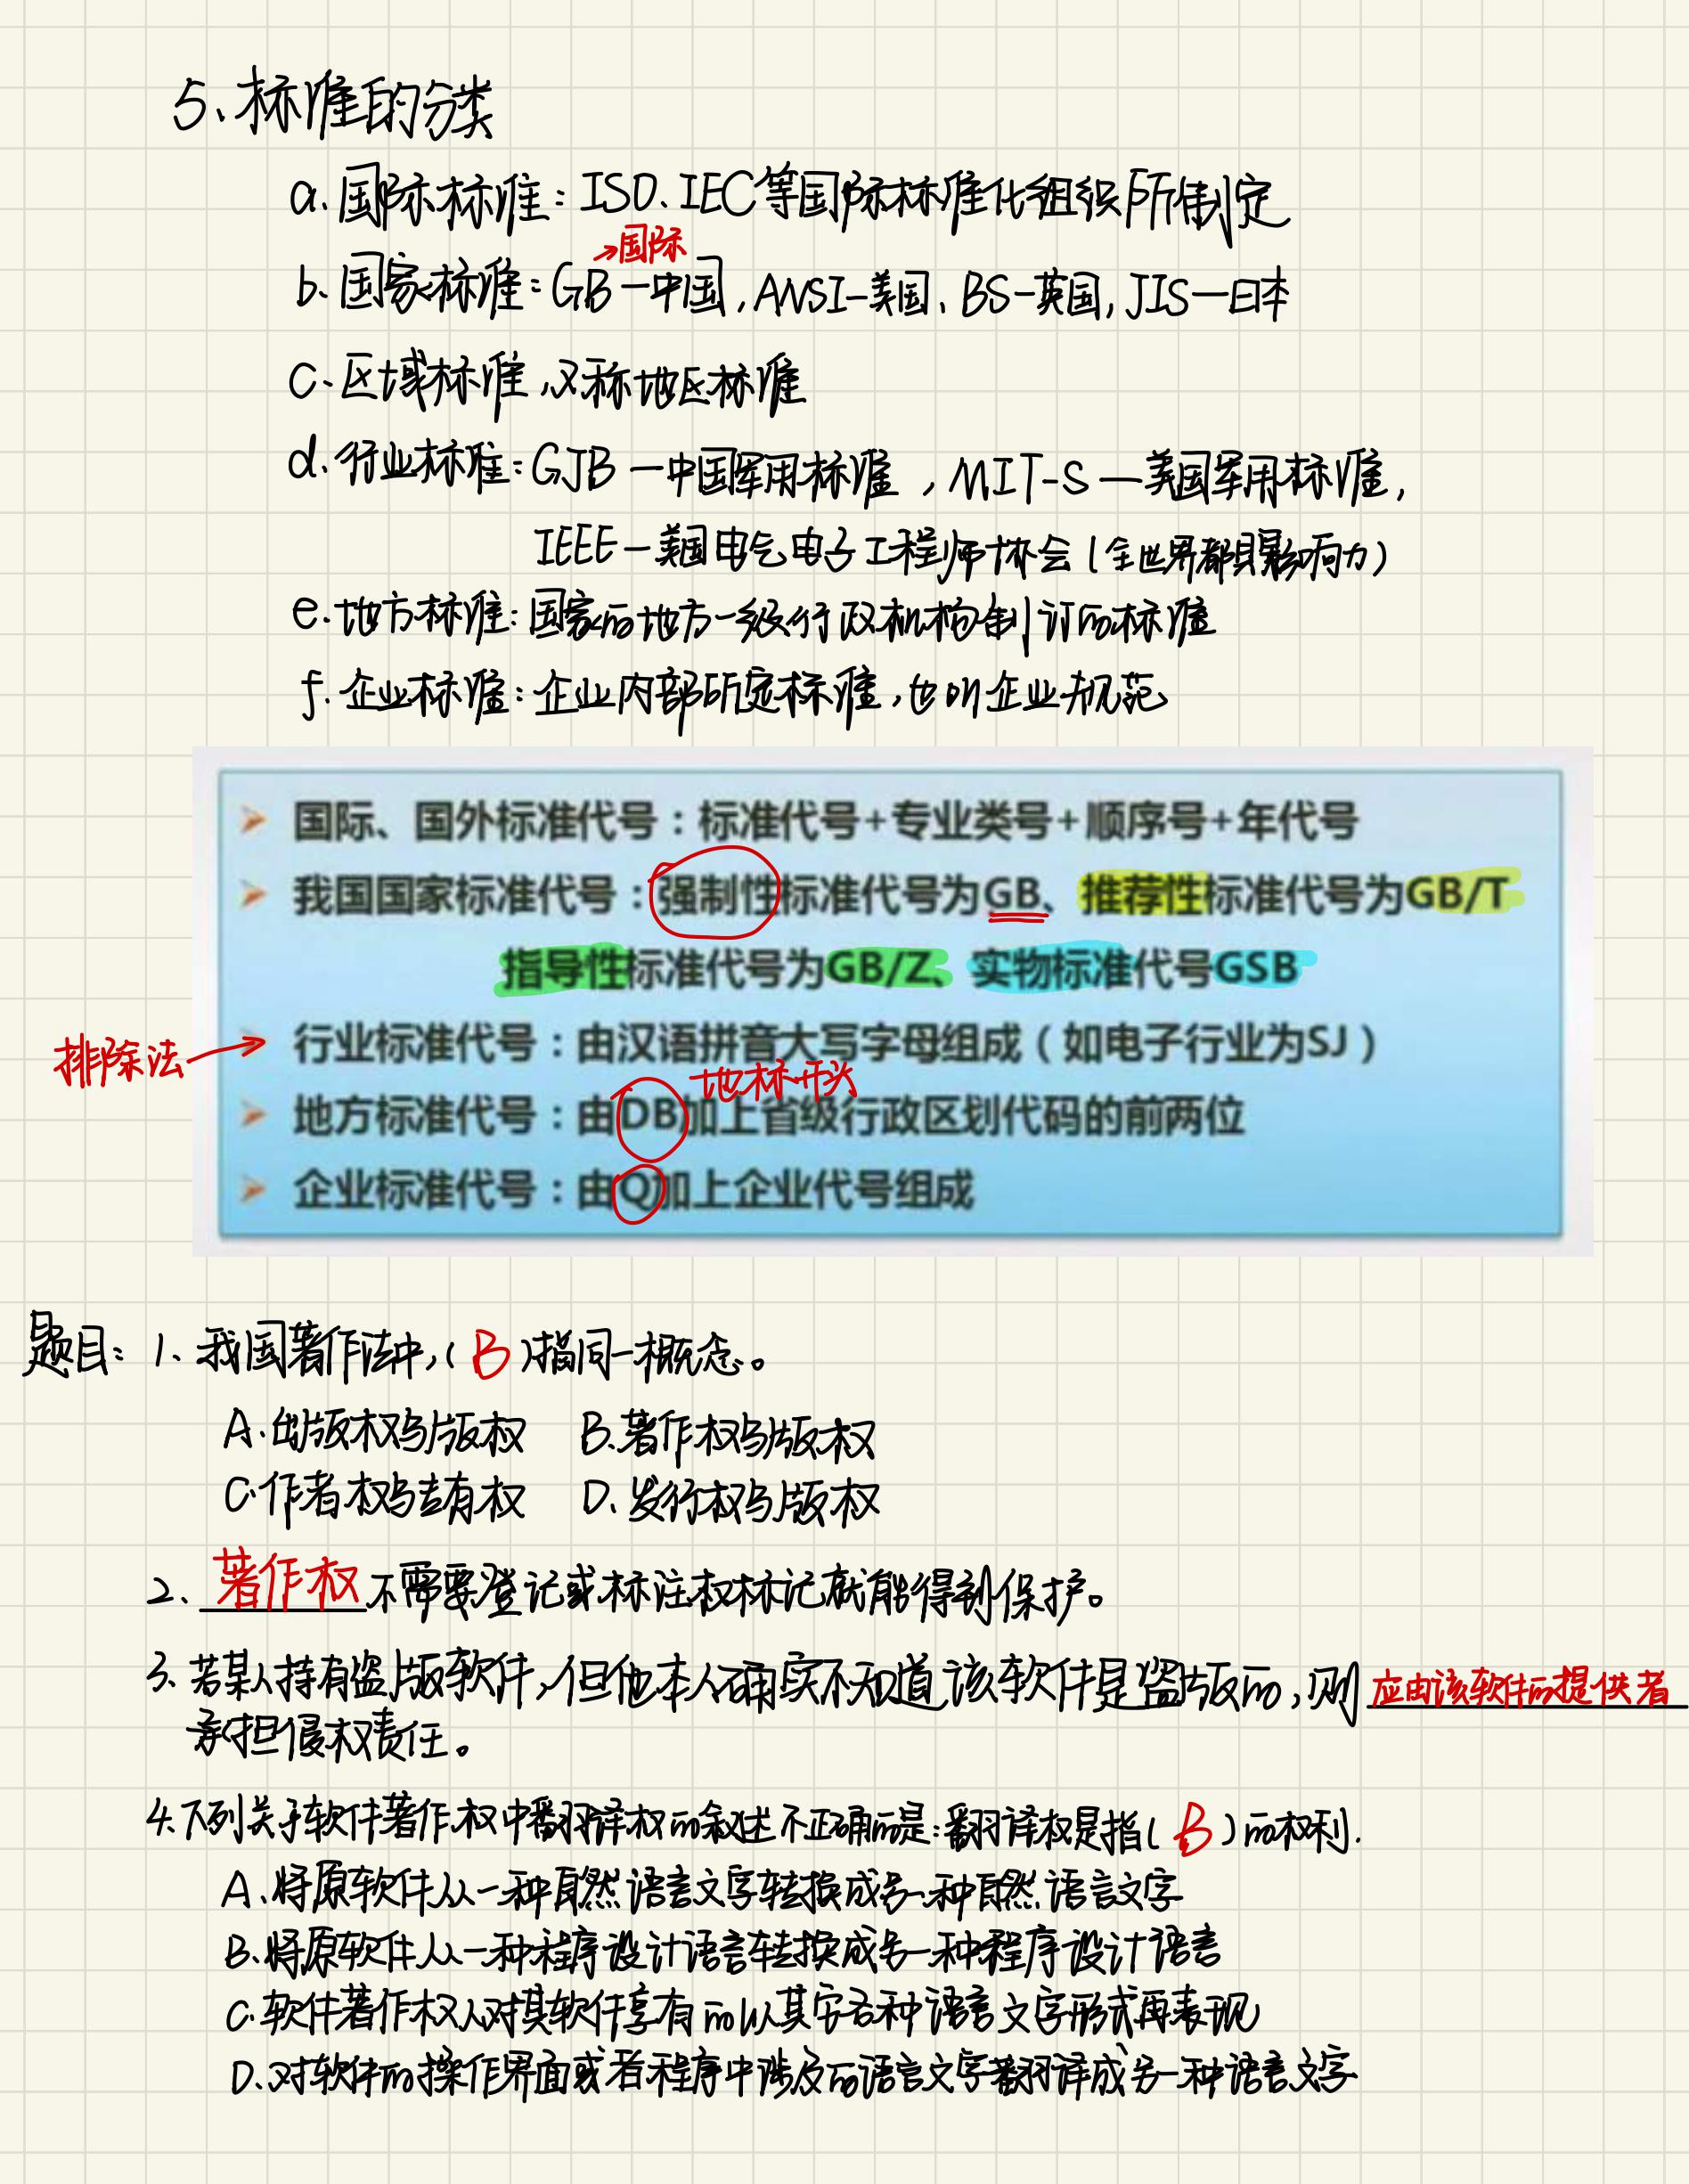 5、标准的分类
a.国际标准：ISO、IEC等国际标准化组织所制定
→国际
b.国家标准：GB—中国，ANSI—美国、BS—英国，JIS—日本
c.区域标准，又称地区标准
d.行业标准：GJB—中国军用标准，MIT-S—美国军用标准，
IEEE—美国电气电子工程师协会（全世界都具影响力）
e.地方标准：国家的地方一级行政机构制订的标准
f.企业标准：企业内部所定标准，也叫企业规范
国际、国外标准代号：标准代号+专业类号+顺序号+年代号
我国国家标准代号：强制性标准代号为GB、推荐性标准代号为GB/T
指导性标准代号为GB/Z、实物标准代号GSB
排除法→
行业标准代号：由汉语拼音大写字母组成（如电子行业为SJ）
地标开头
地方标准代号：由DB加上省级行政区划代码的前两位
企业标准代号：由Q加上企业代号组成
题目：1、我国著作法中，（B）指同一概念。
A.出版权与版权 B.著作权与版权
C.作者权与专有权 D.发行权与版权
2、著作权不需要登记或标注权标记就能得到保护。
3、若某人持有盗版软件，但他本人确实不知道该软件是盗版的，则应由该软件的提供者
承担侵权责任。
4.下列关于软件著作权中翻译权的叙述不正确的是：翻译权是指（B）的权利.
A.将原软件从一种自然语言文字转换成另一种自然语言文字
B.将原软件从一种程序设计语言转换成另一种程序设计语言
C.软件著作权人对其软件享有的以其它各种语言文字形式再表现
D.对软件的操作界面或者程序中涉及的语言文字翻译成另一种语言文字